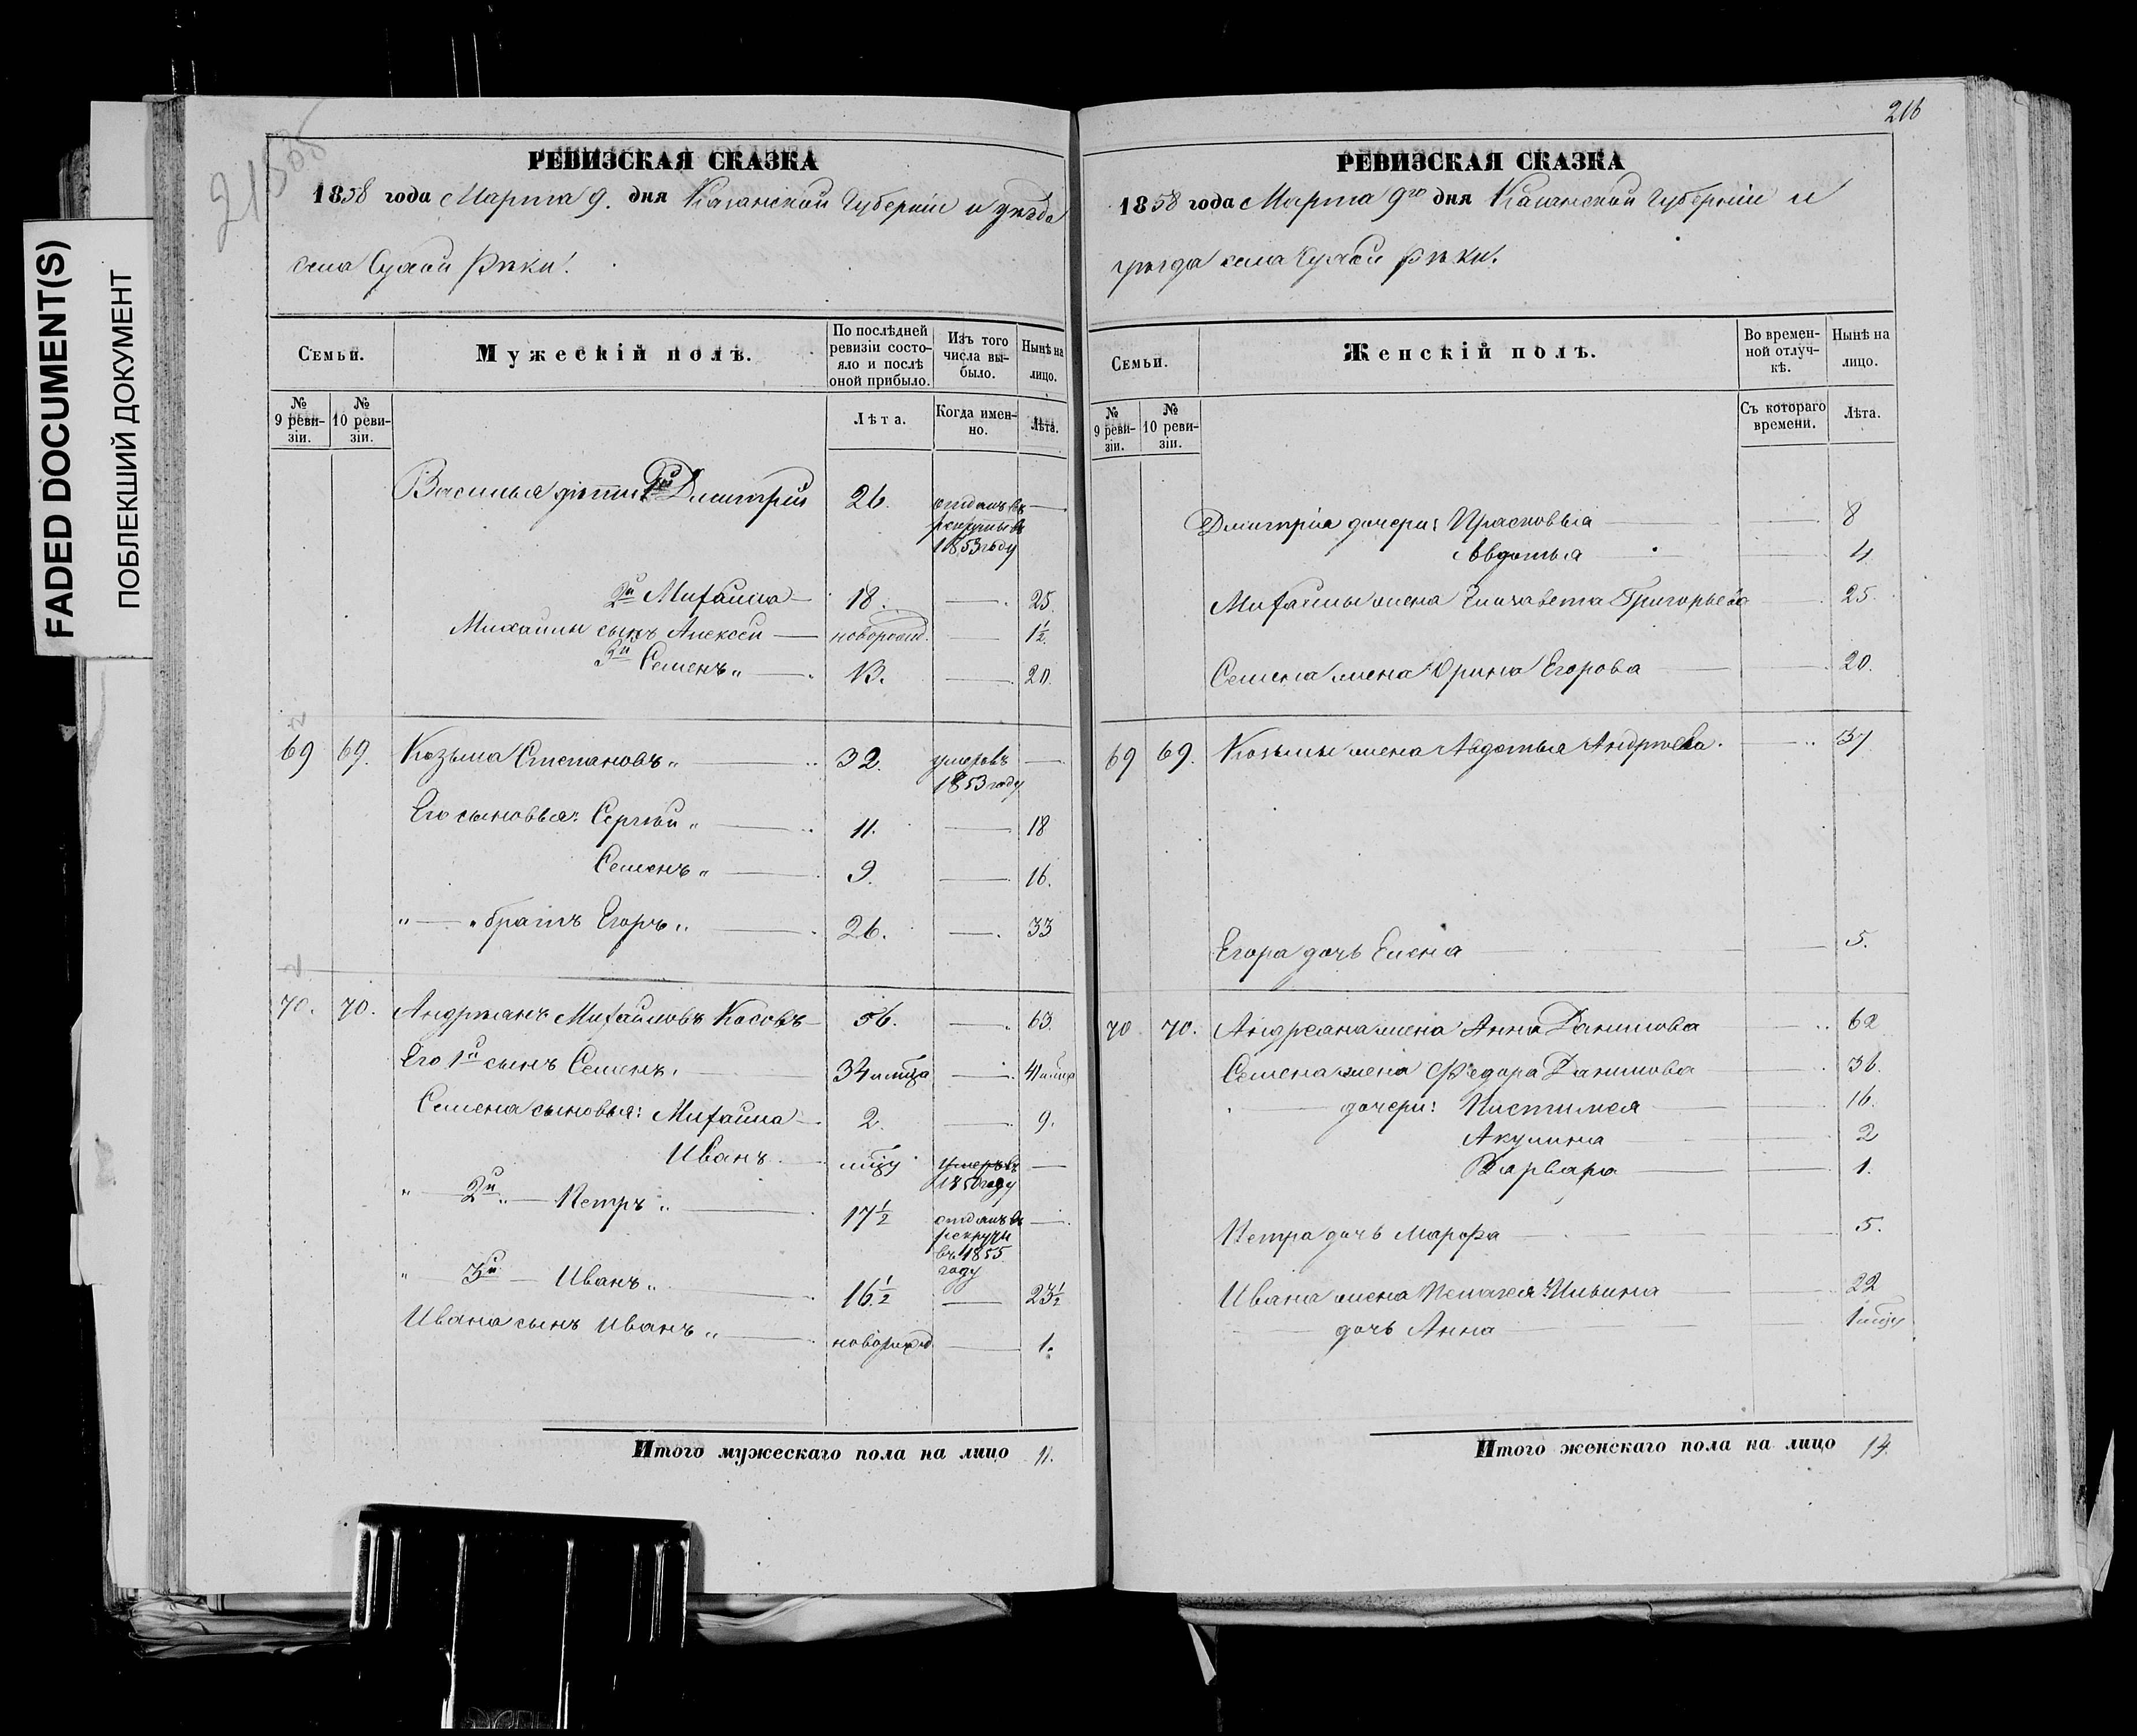 FADED DOCUMENT(S)
ПОБЛЕКШИЙ ДОКУМЕНТ
РЕВИЗСКАЯ СКАЗКА
1858 года Марта 9. дня Казанской Губернiи и уѣзда
села Сухой Рѣки.
Семьи.
Мужескiй полъ.
По послѣдней ревизiи состояло и послѣ оной прибыло.
Изъ того числа выбыло.
Нынѣ на лицо.
№ 9 ревизiи.
№ 10 ревизiи.
Лѣта.
Когда именно.
Лѣта.
Василья дѣти: 1й Дмитрiй 26. отданъ въ рекруты въ 1853 году
2й Михайла 18. 25.
Михайлы сынъ Алексѣй новорожд. 1½.
3й Семенъ 13. 20.
69 69. Козьма Степановъ 32. умеръ въ 1853 году
Его сыновья: Сергѣй 11. 18
Семенъ 9. 16.
братъ Егоръ 26. 33
70. 70. Андреянъ Михайловъ Косовъ 56. 63.
Его 1й сынъ Семенъ 34 41
Семена сыновья: Михайла 2. 9.
Иванъ умеръ въ 1850 году
2й Петръ 17½ отданъ въ рекруты въ 1855 году
3й Иванъ 16½ 23½
Ивана сынъ Иванъ новорожд 1.
Итого мужескаго пола на лицо 11.
216
РЕВИЗСКАЯ СКАЗКА
1858 года Марта 9го дня Казанской Губернiи и
уѣзда села Сухой рѣки.
Семьи.
Женскiй полъ.
Во временной отлучкѣ.
Нынѣ на лицо.
№ 9 ревизiи.
№ 10 ревизiи.
Съ котораго времени.
Лѣта.
Дмитрiя дочери: Прасковья 8
Авдотья 4
Михайлы жена Елизавета Григорьева 25.
Семена жена Ирина Егорова 20.
69 69. Козьмы жена Авдотья Андреева. 37
Егора дочь Елена 5.
70 70. Андреяна жена Анна Данилова 62
Семена жена Федора Данилова 36.
дочери: Пистимея 16.
Акулина 2
Варвара 1.
Петра дочь Марфа 5.
Ивана жена Пелагея Ильина 22
дочь Анна
Итого женскаго пола на лицо 14.